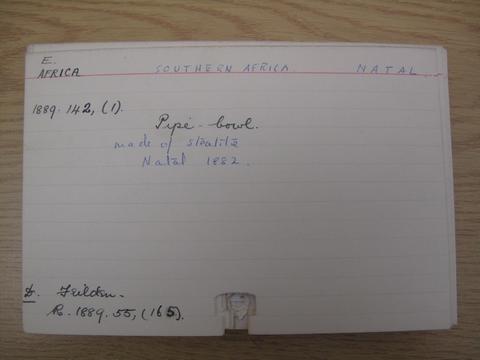 E.
AFRICA SOUTHERN AFRICA. NATAL.
1889.142,(1).
Pipe-bowl.
made of steatite
Natal 1882.
D. Feilden.
R. 1889.55,(165).